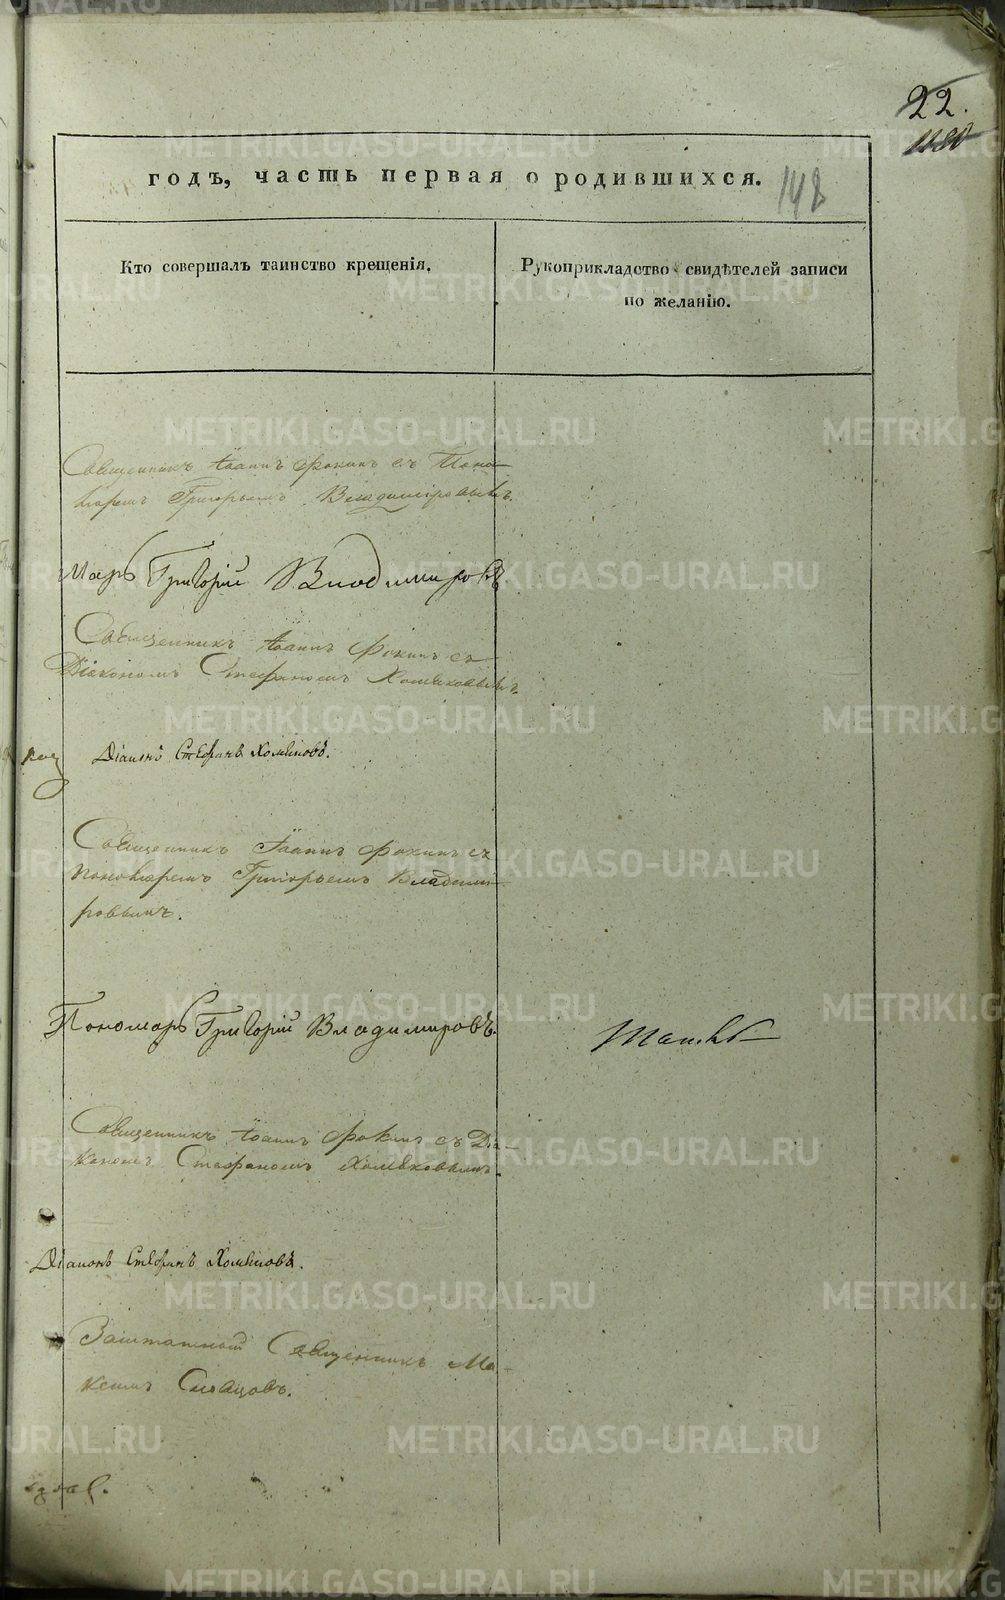 22.
148
годъ, часть первая о родившихся.
Кто совершалъ таинство крещенія.
Рукоприкладство свидѣтелей записи
по желанію.
Священникъ Іоаннъ Фокинъ съ Поно-
маремъ Григорьемъ Владиміровымъ.
Марь Григорій Владимировъ
Священникъ Іоаннъ Фокинъ съ
Діакономъ Стефаномъ Хомяковымъ.
Діаконъ Стефанъ Хомяковъ.
Священникъ Іоаннъ Фокинъ съ
Пономаремъ Григорьемъ Владими-
ровымъ.
Пономарь Григорій Владимировъ.
Священникъ Іоаннъ Фокинъ съ Діа-
кономъ Стефаномъ Хомяковымъ.
Діаконъ Стефанъ Хомяковъ.
Заштатный Священникъ Ма-
ксимъ Словцовъ.
METRIKI.GASO-URAL.RU